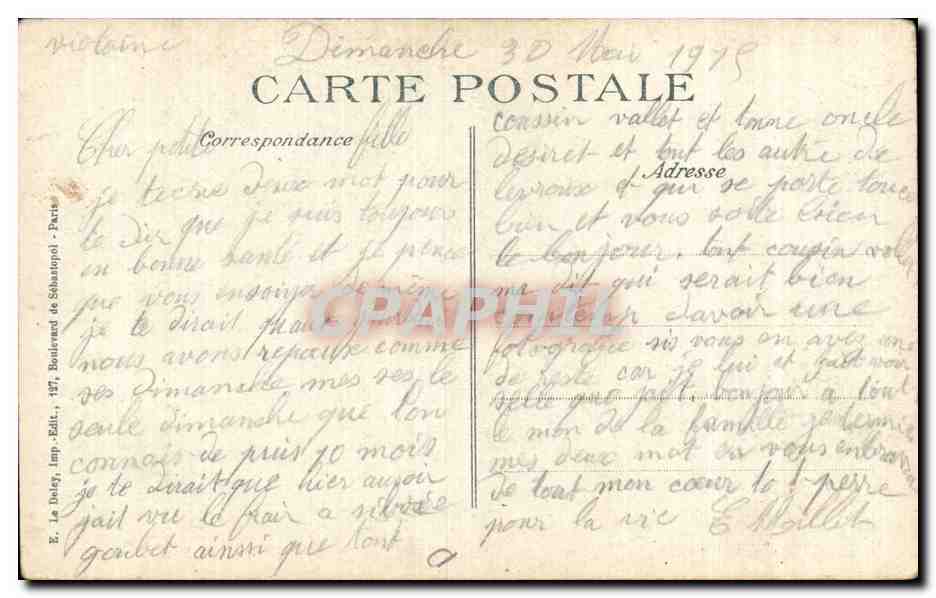 violaine
Dimanche 30 Mai 1915
CARTE POSTALE
Correspondance
Adresse
Cher petite fille
je tecrie deux mot pour
te dir que je suis toujours
en bonne santé et je pence
que vous en soiyer de même
je te dirait
nous avons repaux comme
ses dimanche mes ses le
seule dimanche que l'on
connais de puis 10 mois
je te dirait que hier au soir
jait vu le frair a
goubet ainssi que tout
coussin vallet et tonne oncle
desiret et tout les autre de
levroux et qui se porte touce
bien et vous soite bien
le bonjour. tont cousin vallet
ma dit qui serait bien
contenr davoir une
fotografie sis vous en aves une
de reste car je lui et
celle que jait, bonjour a tout
le mon de la famille je termine
mes deux mot en vous enbrassan
de tout mon cœur to t perre
pour la vie E
E. Le Deley, Imp.-Edit., 127, Boulevard de Sébastopol - Paris
CPAPHIL